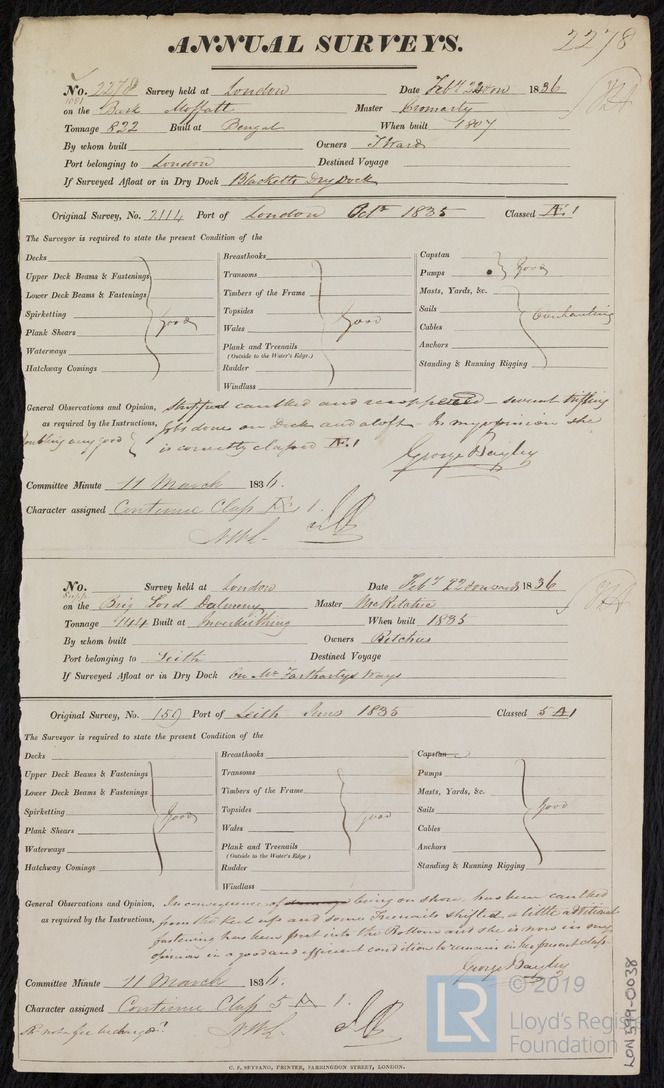 ANNUAL SURVEYS.
2278
No. 2278 Survey held at London Date Feby 22 1836
on the Bark Moffatt Master Cromarty
Tonnage 822 Built at Bengal When built 1807
By whom built Owners T Ward
Port belonging to London Destined Voyage
If Surveyed Afloat or in Dry Dock Blacketts Dry Dock
Original Survey, No. 2114 Port of London Octr 1835 Classed Æ 1
The Surveyor is required to state the present Condition of the
Decks
Upper Deck Beams & Fastenings
Lower Deck Beams & Fastenings
Spirketting
Plank Shears
Waterways
Hatchway Comings
good
Breasthooks
Transoms
Timbers of the Frame
Topsides
Wales
Plank and Treenails
(Outside to the Water's Edge.)
Rudder
Windlass
good
Capstan
Pumps
good
Masts, Yards, &c.
Sails
Cables
Anchors
Standing & Running Rigging
Overhauling
General Observations and Opinion, Stripped caulked and recoppered – several trifling
as required by the Instructions, jobs done on Deck and aloft – In my opinion she
is correctly classed Æ 1
George Bayley
Committee Minute 11 March 1836.
Character assigned Continue Class Æ 1.
No. Survey held at London Date Feby 22 1836
on the Brig Lord Dalmeny Master
Tonnage 144 Built at Inverkeithing When built 1835
By whom built Owners
Port belonging to Leith Destined Voyage
If Surveyed Afloat or in Dry Dock On Mr Ways
Original Survey, No. 159 Port of Leith June 1835 Classed 5 A 1
The Surveyor is required to state the present Condition of the
Decks
Upper Deck Beams & Fastenings
Lower Deck Beams & Fastenings
Spirketting
Plank Shears
Waterways
Hatchway Comings
good
Breasthooks
Transoms
Timbers of the Frame
Topsides
Wales
Plank and Treenails
(Outside to the Water's Edge.)
Rudder
Windlass
good
Capstan
Pumps
Masts, Yards, &c.
Sails
Cables
Anchors
Standing & Running Rigging
good
General Observations and Opinion, In consequence of being on shore has been caulked
as required by the Instructions, from the keel up and some Trenails shifted a little additional
fastening has been put into the Bottom and she is now in my
opinion in a good and efficient condition to remain in her present class
George Bayley
Committee Minute 11 March 1836.
Character assigned Continue Class 5 A 1.
C. F. SEYFANG, PRINTER, FARRINGDON STREET, LONDON.
LR
© 2019
Lloyd's Register
Foundation
LON 599-0038